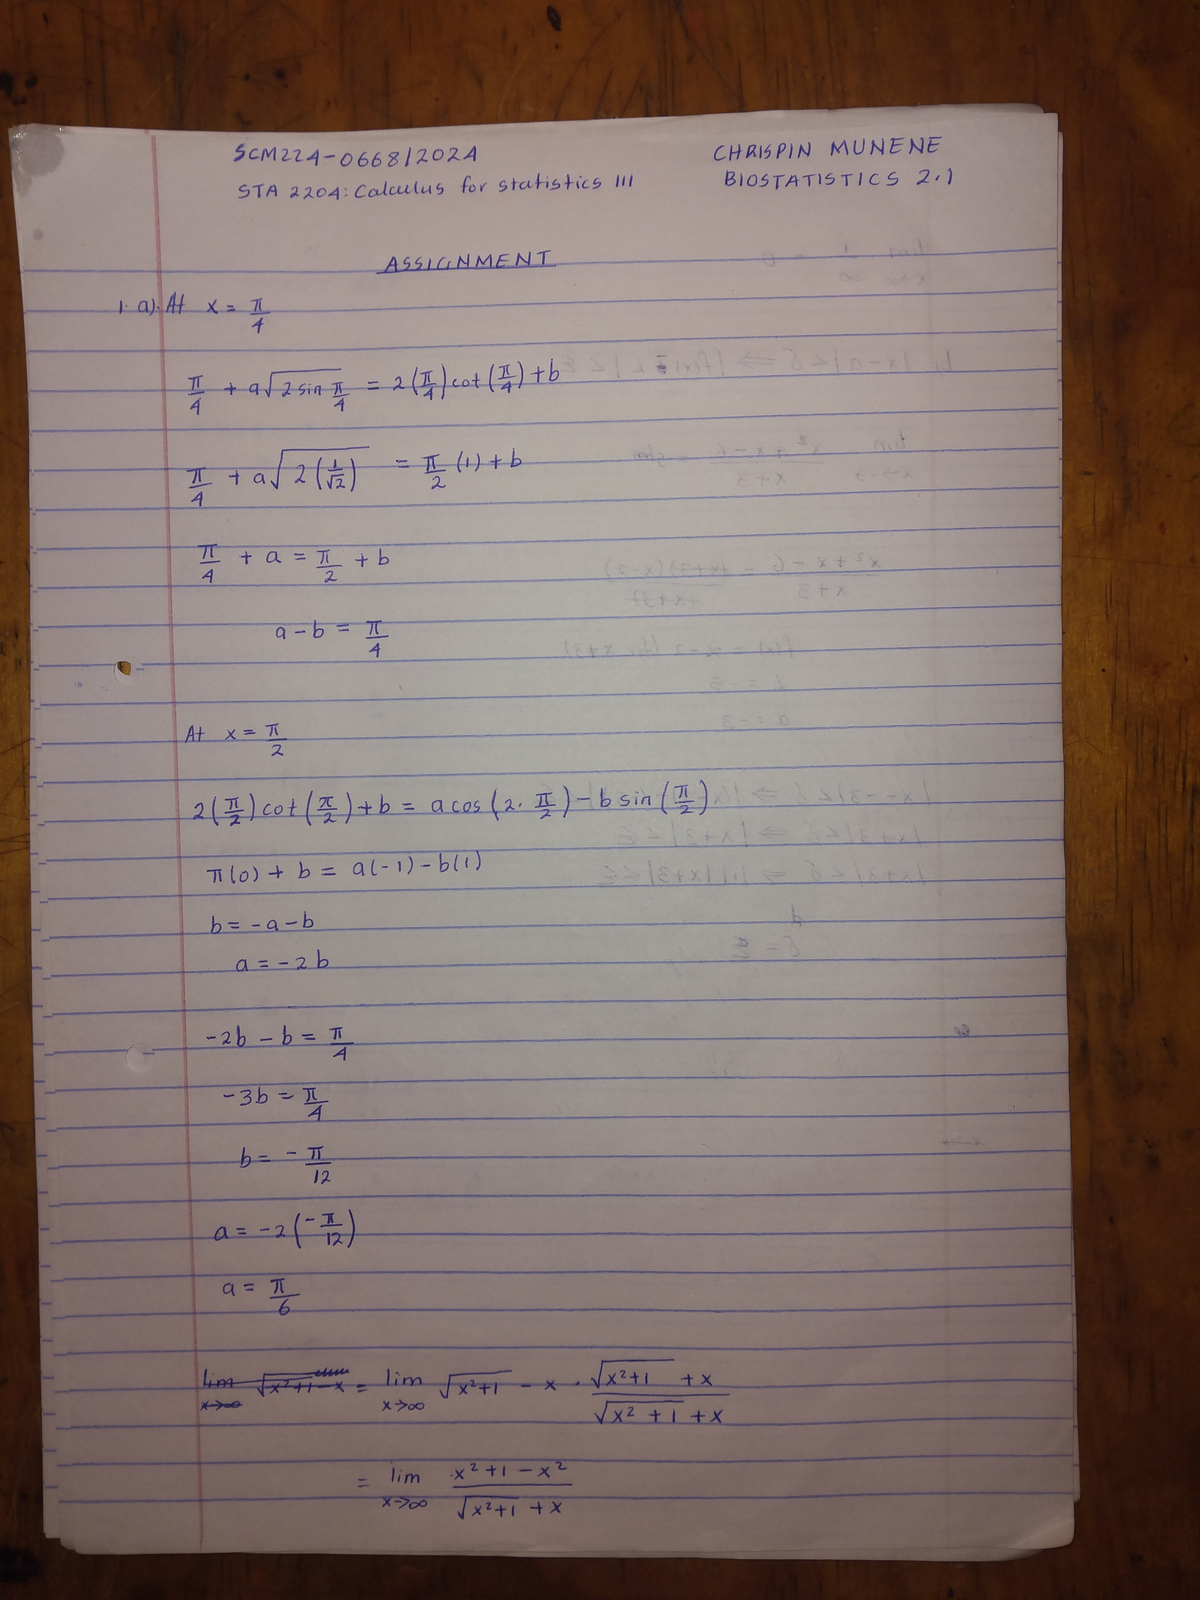 SCM224-0668/2024
CHRISPIN MUNENE
STA 2204: Calculus for statistics III
BIOSTATISTICS 2.1
ASSIGNMENT
1. a). At x = π/4
π/4 + a√(2 sin π/4) = 2(π/4)cot(π/4) + b
π/4 + a√(2(1/√2)) = π/2 (1) + b
π/4 + a = π/2 + b
a - b = π/4
At x = π/2
2(π/2)cot(π/2) + b = a cos(2. π/2) - b sin(π/2)
π(0) + b = a(-1) - b(1)
b = -a - b
a = -2b
-2b - b = π/4
-3b = π/4
b = - π/12
a = -2(-π/12)
a = π/6
lim x→∞ √(x²+1) - x = lim x→∞ √(x²+1) - x · (√(x²+1) + x)/(√(x²+1) + x)
= lim x→∞ (x²+1 - x²)/(√(x²+1) + x)